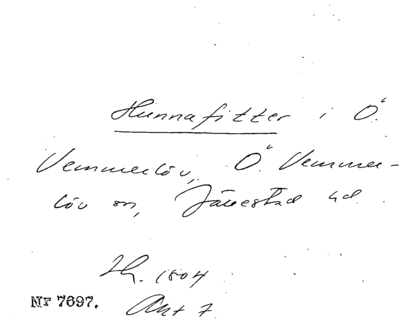 Hunnafitter i Ö.
Vemmerlöv, Ö. Vemmer-
löv sn, Järrestad hd.
Lh. 1804
Akt 7
Nr 7697.